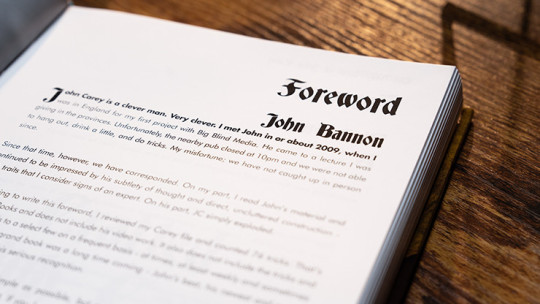 Foreword
John Bannon
John Carey is a clever man. Very clever. I met John in or about 2009, when I
was in England for my first project with Big Blind Media. He came to a lecture I was
giving in the provinces. Unfortunately, the nearby pub closed at 10pm and we were not able
to hang out, drink a little, and do tricks. My misfortune; we have not caught up in person
since.
Since that time, however, we have corresponded. On my part, I read John's material and
continued to be impressed by his subtlety of thought and direct, uncluttered construction
traits that I consider signs of an expert. On his part, JC simply exploded.
ing to write this foreword, I reviewed my Carey file and counted 76 tricks. That's
books and does not include his video work. It also does not include the tricks
to a select few on a frequent basis - at times, at least weekly and sometimes
grand book was a long time coming - John's best, his
serious recognition.
as possible, but